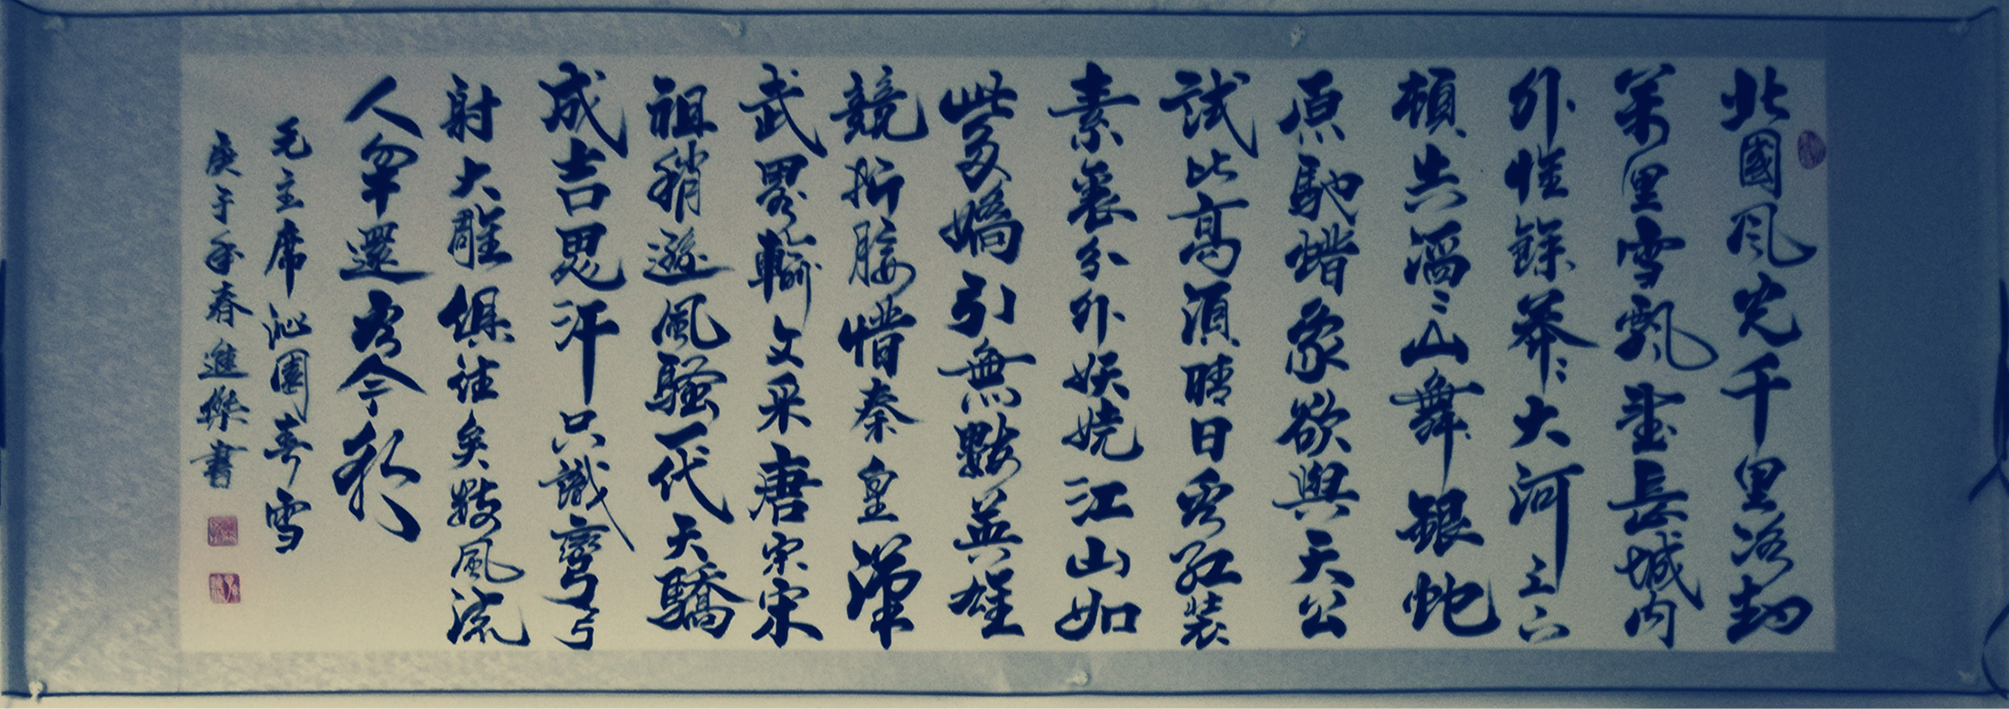 北國风光千里冰封
萬里雪飘望長城内
外惟餘莽〻大河上下
頓失滔〻山舞銀蛇
原馳蜡象欲與天公
試比高須晴日看紅装
素裹分外妖娆江山如
此多嬌引無數英雄
競折腰惜秦皇漢
武畧輸文采唐宗宋
祖稍遜風騷一代天驕
成吉思汗只識彎弓
射大雕俱往矣數風流
人物還看今朝
毛主席沁園春雪
庚子年春進書